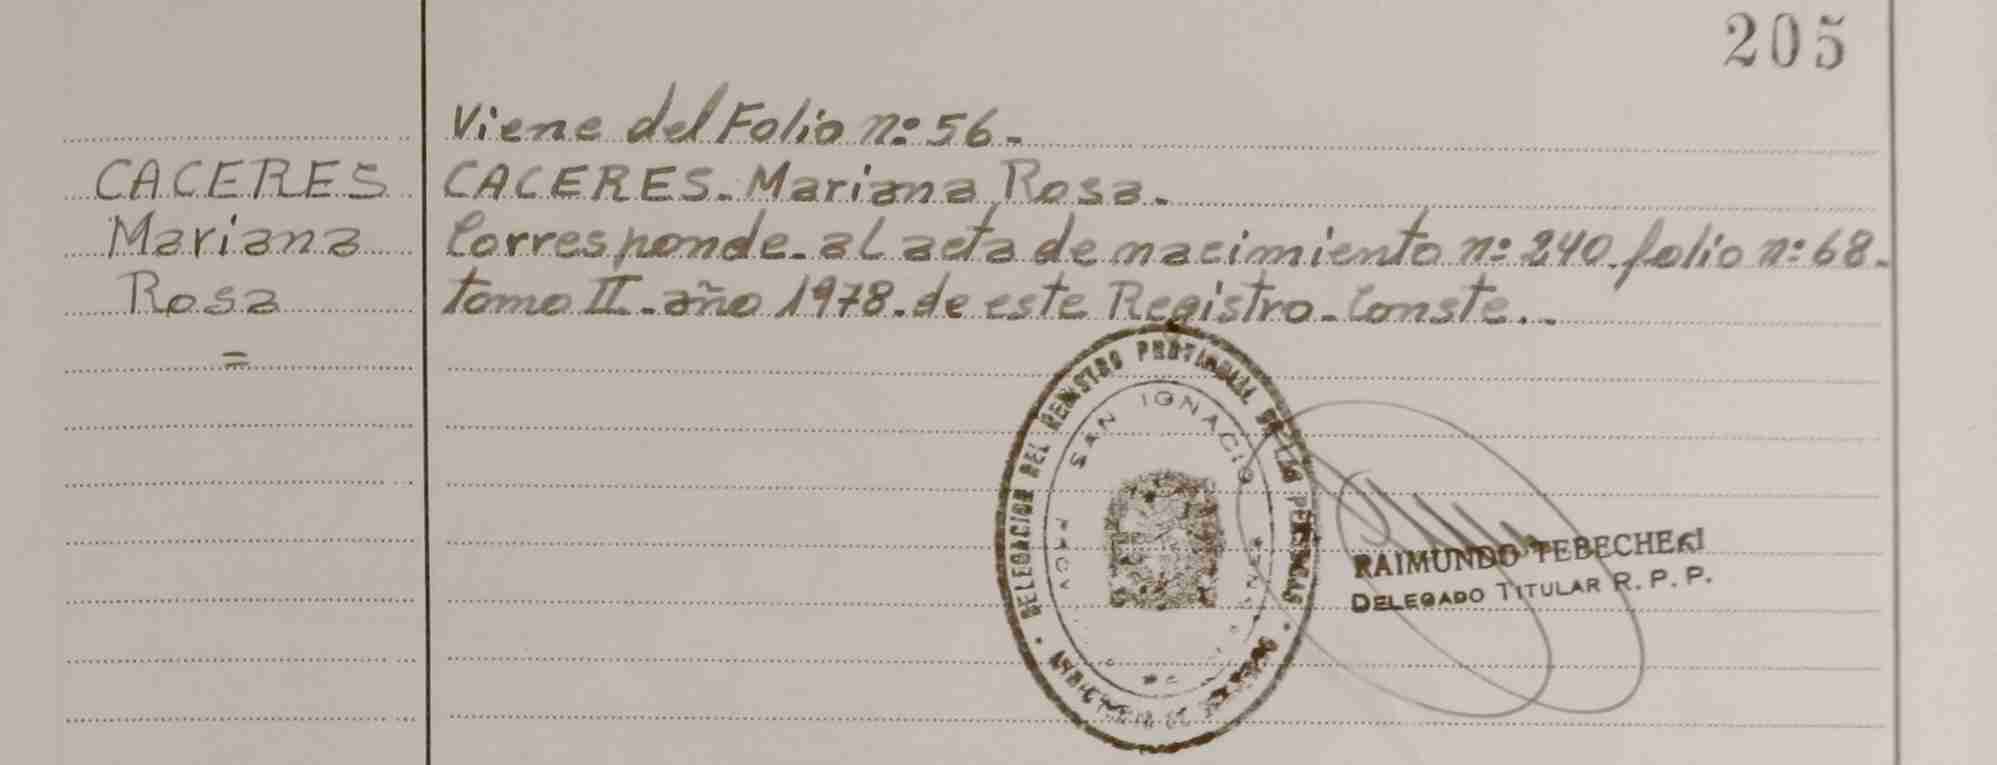 205
Viene del Folio nº 56.-
CACERES
Mariana
Rosa
=
CACERES. Mariana Rosa.-
Corresponde. al acta de nacimiento nº 240. folio nº 68.-
tomo II. año 1978. de este Registro. Conste..-
DELEGACION DEL REGISTRO PROVINCIAL DE LAS PERSONAS
SAN IGNACIO
RAIMUNDO TEBECHERI
DELEGADO TITULAR R. P. P.